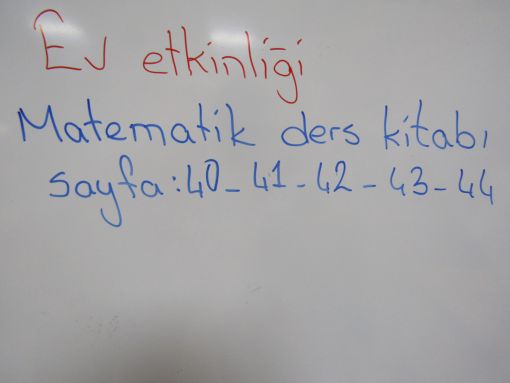 Ev etkinliği
Matematik ders kitabı
sayfa:40-41-42-43-44